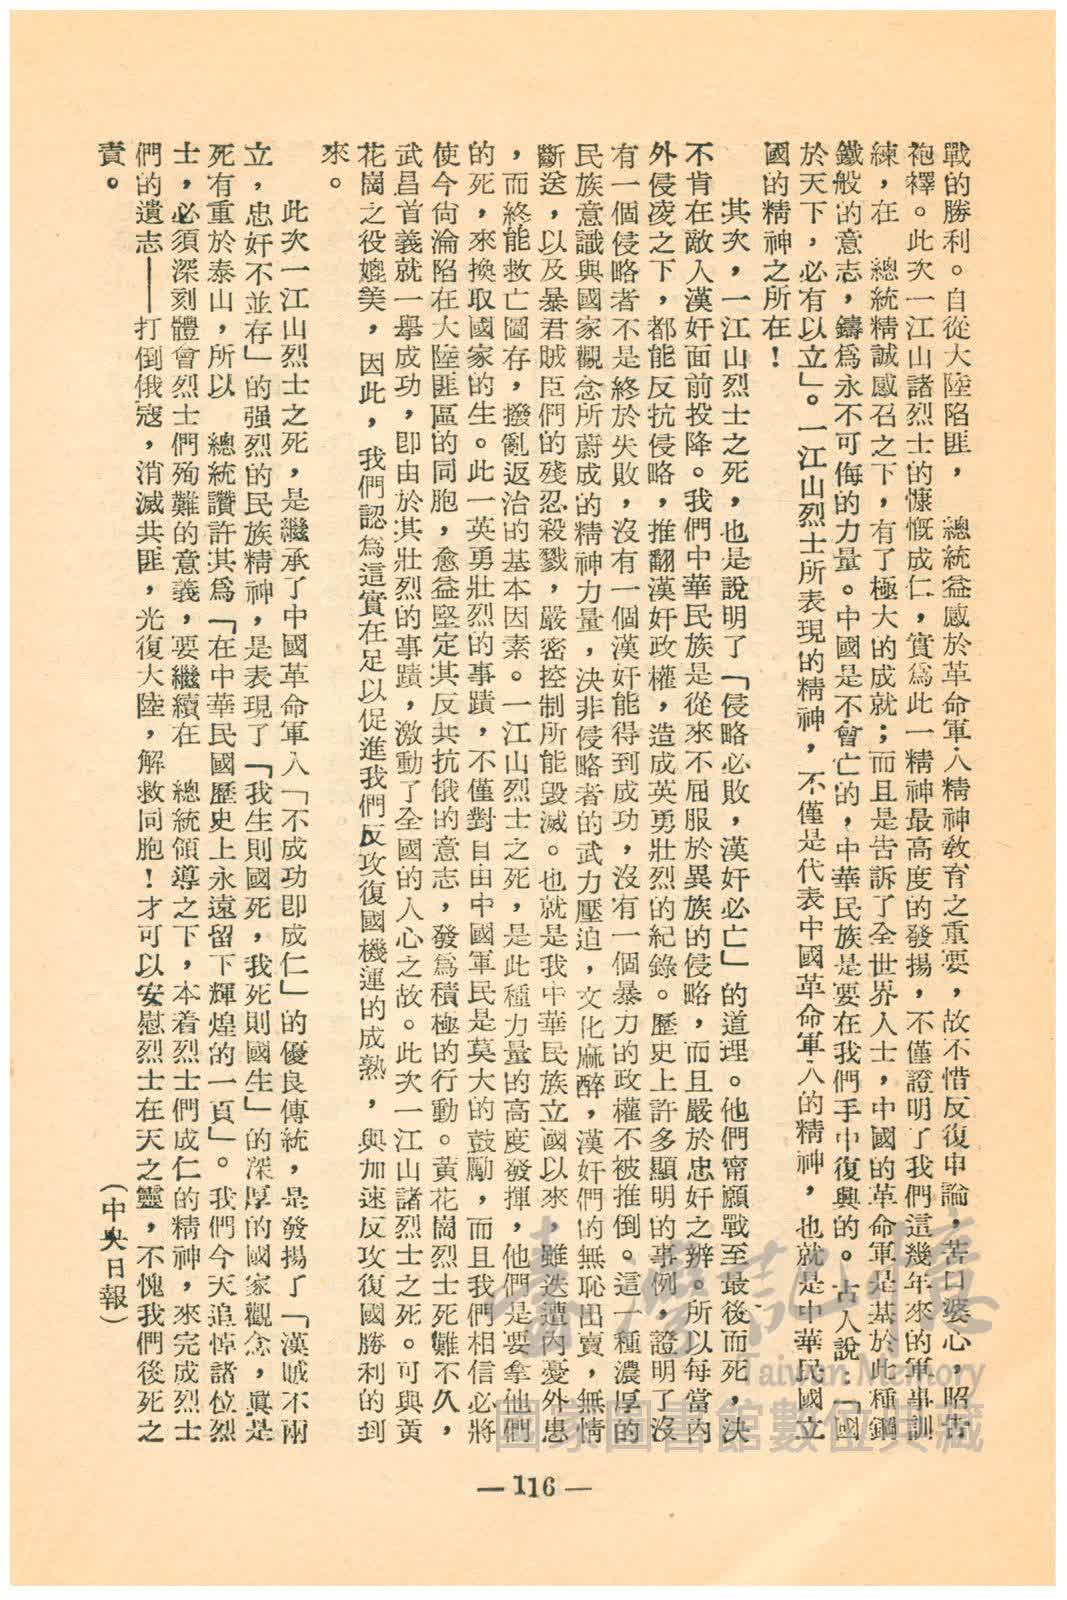 戰的勝利。自從大陸陷匪，　總統益感於革命軍人精神敎育之重要，故不惜反復申論，苦口婆心，昭告
袍襗。此次一江山諸烈士的慷慨成仁，實爲此一精神最高度的發揚，不僅證明了我們這幾年來的軍事訓
練，在　總統精誠感召之下，有了極大的成就；而且是告訴了全世界人士，中國的革命軍是基於此種鋼
鐵般的意志，鑄爲永不可侮的力量。中國是不會亡的，中華民族是要在我們手中復興的。古人說：「國
於天下，必有以立」。一江山烈士所表現的精神，不僅是代表中國革命軍人的精神，也就是中華民國立
國的精神之所在！
其次，一江山烈士之死，也是說明了「侵略必敗，漢奸必亡」的道理。他們甯願戰至最後而死，決
不肯在敵人漢奸面前投降。我們中華民族是從來不屈服於異族的侵略，而且嚴於忠奸之辨。所以每當內
外侵凌之下，都能反抗侵略，推翻漢奸政權，造成英勇壯烈的紀錄。歷史上許多顯明的事例，證明了沒
有一個侵略者不是終於失敗，沒有一個漢奸能得到成功，沒有一個暴力的政權不被推倒。這一種濃厚的
民族意識與國家觀念所蔚成的精神力量，決非侵略者的武力壓迫，文化麻醉，漢奸們的無恥出賣，無情
斷送，以及暴君賊臣們的殘忍殺戮，嚴密控制所能毀滅。也就是我中華民族立國以來，雖迭遭內憂外患
，而終能救亡圖存，撥亂返治的基本因素。一江山烈士之死，是此種力量的高度發揮，他們是要拿他們
的死，來換取國家的生。此一英勇壯烈的事蹟，不僅對自由中國軍民是莫大的鼓勵，而且我們相信必將
使今尙淪陷在大陸匪區的同胞，愈益堅定其反共抗俄的意志，發爲積極的行動。黃花崗烈士死難不久，
武昌首義就一舉成功，卽由於其壯烈的事蹟，激動了全國的人心之故。此次一江山諸烈士之死。可與黃
花崗之役媲美，因此，我們認爲這實在足以促進我們反攻復國機運的成熟，與加速反攻復國勝利的到
來。
此次一江山烈士之死，是繼承了中國革命軍人「不成功卽成仁」的優良傳統，是發揚了「漢賊不兩
立，忠奸不並存」的强烈的民族精神，是表現了「我生則國死，我死則國生」的深厚的國家觀念，眞是
死有重於泰山，所以　總統讚許其爲「在中華民國歷史上永遠留下輝煌的一頁」。我們今天追悼諸位烈
士，必須深刻體會烈士們殉難的意義，要繼續在　總統領導之下，本着烈士們成仁的精神，來完成烈士
們的遺志——打倒俄寇，消滅共匪，光復大陸，解救同胞！才可以安慰烈士在天之靈，不愧我們後死之
責。
（中央日報）
— 116 —
臺灣記憶
Taiwan Memory
國家圖書館數位典藏